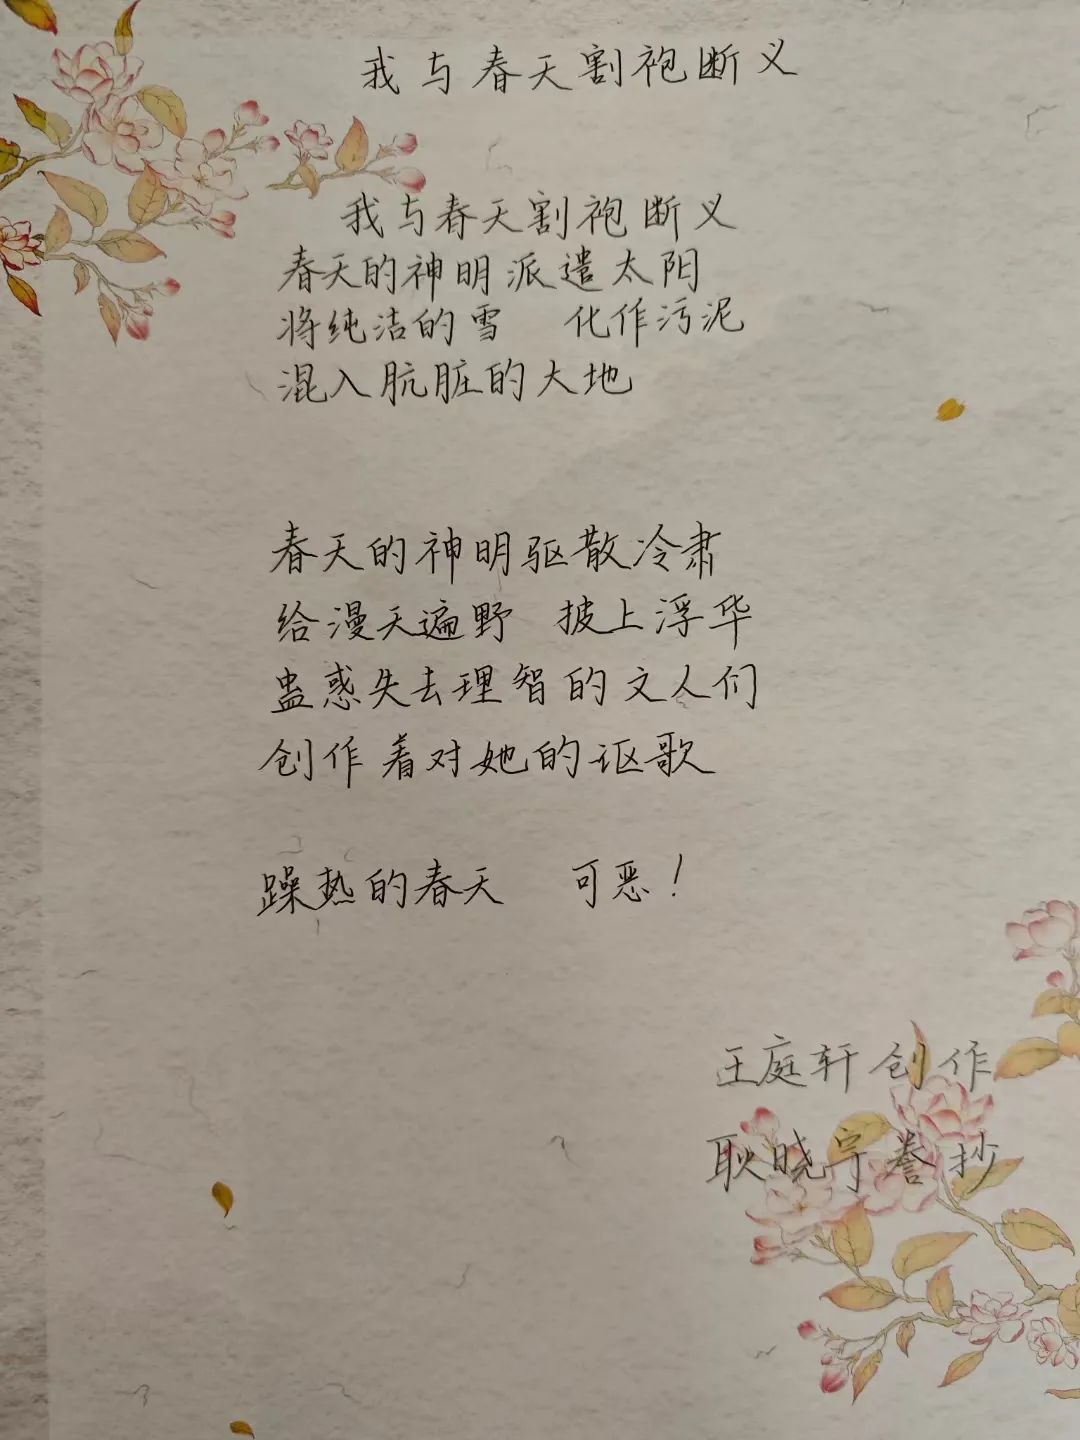 我与春天割袍断义
我与春天割袍断义
春天的神明派遣太阳
将纯洁的雪 化作污泥
混入肮脏的大地
春天的神明驱散冷肃
给漫天遍野 披上浮华
蛊惑失去理智的文人们
创作着对她的讴歌
躁热的春天 可恶！
王庭轩创作
耿晓宇誊抄